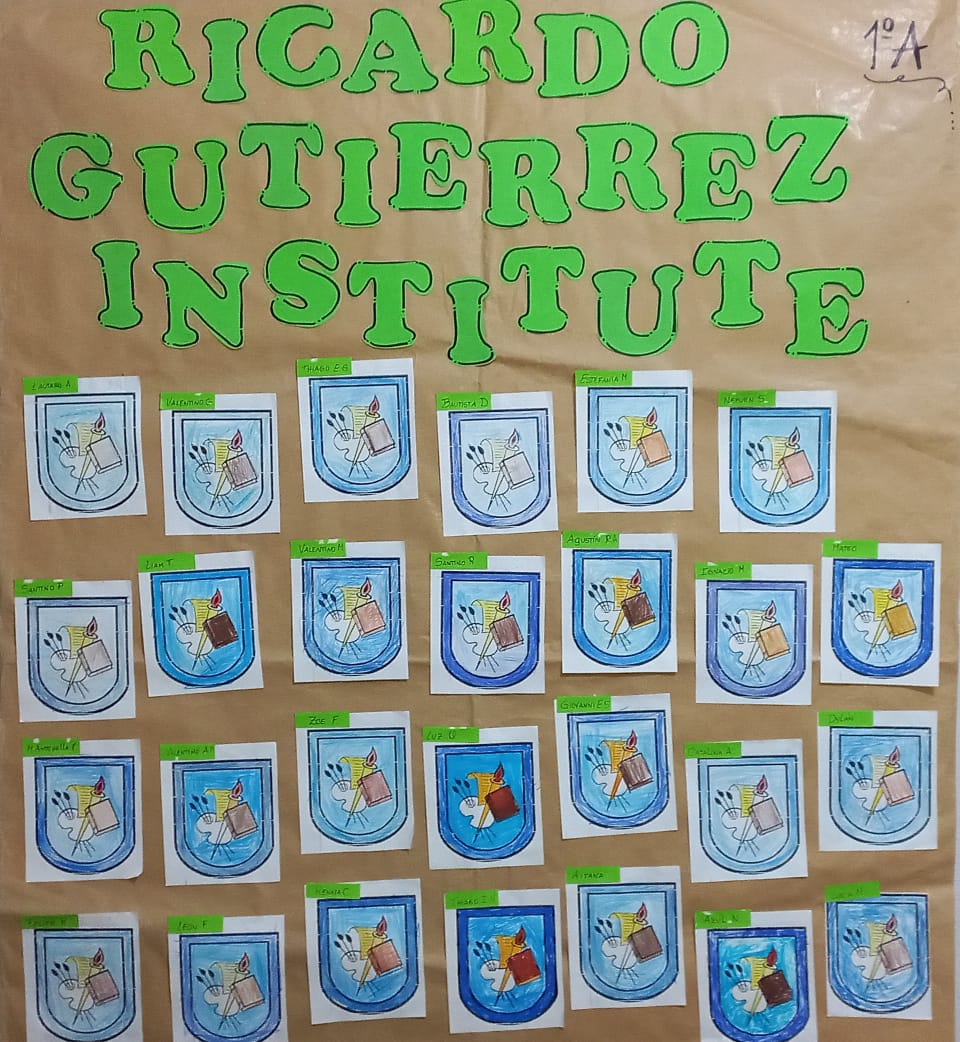 RICARDO
1º A
GUTIERREZ
INSTITUTE
LAUTARO A
VALENTINO G
THIAGO E G
BAUTISTA D
ESTEFANIA M
NEHUEN S
SANTINO P
LIAM T
VALENTINO M
SANTINO R
AGUSTÍN RA
IGNACIO M
MATEO
M ANTONELLA P
VALENTINO AM
ZOE F
LUZ Q
GIOVANNI E S
CATALINA A
DYLAN
LEÓN F
THIAGO
AITANA
AZUL N